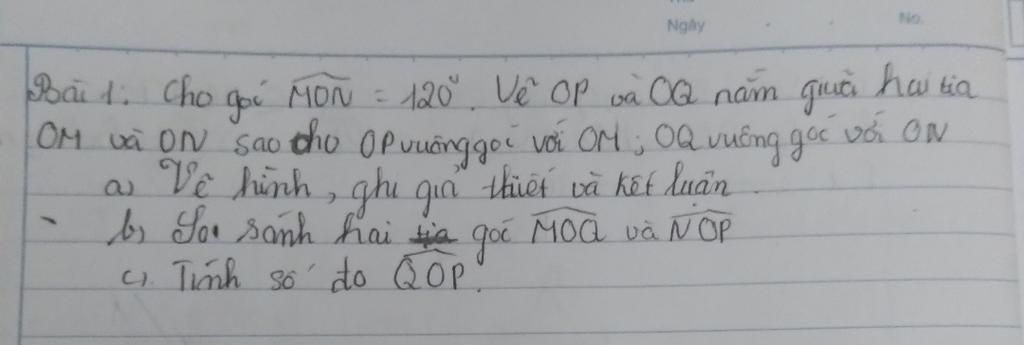 Ngày
No.
Bài 1: Cho góc MON = 120°. Vẽ OP và OQ nằm giữa hai tia
OM và ON sao cho OP vuông góc với OM; OQ vuông góc với ON
a) Vẽ hình, ghi giả thiết và kết luận.
b) So sánh hai góc MOQ và NOP
c). Tính số đo QOP.